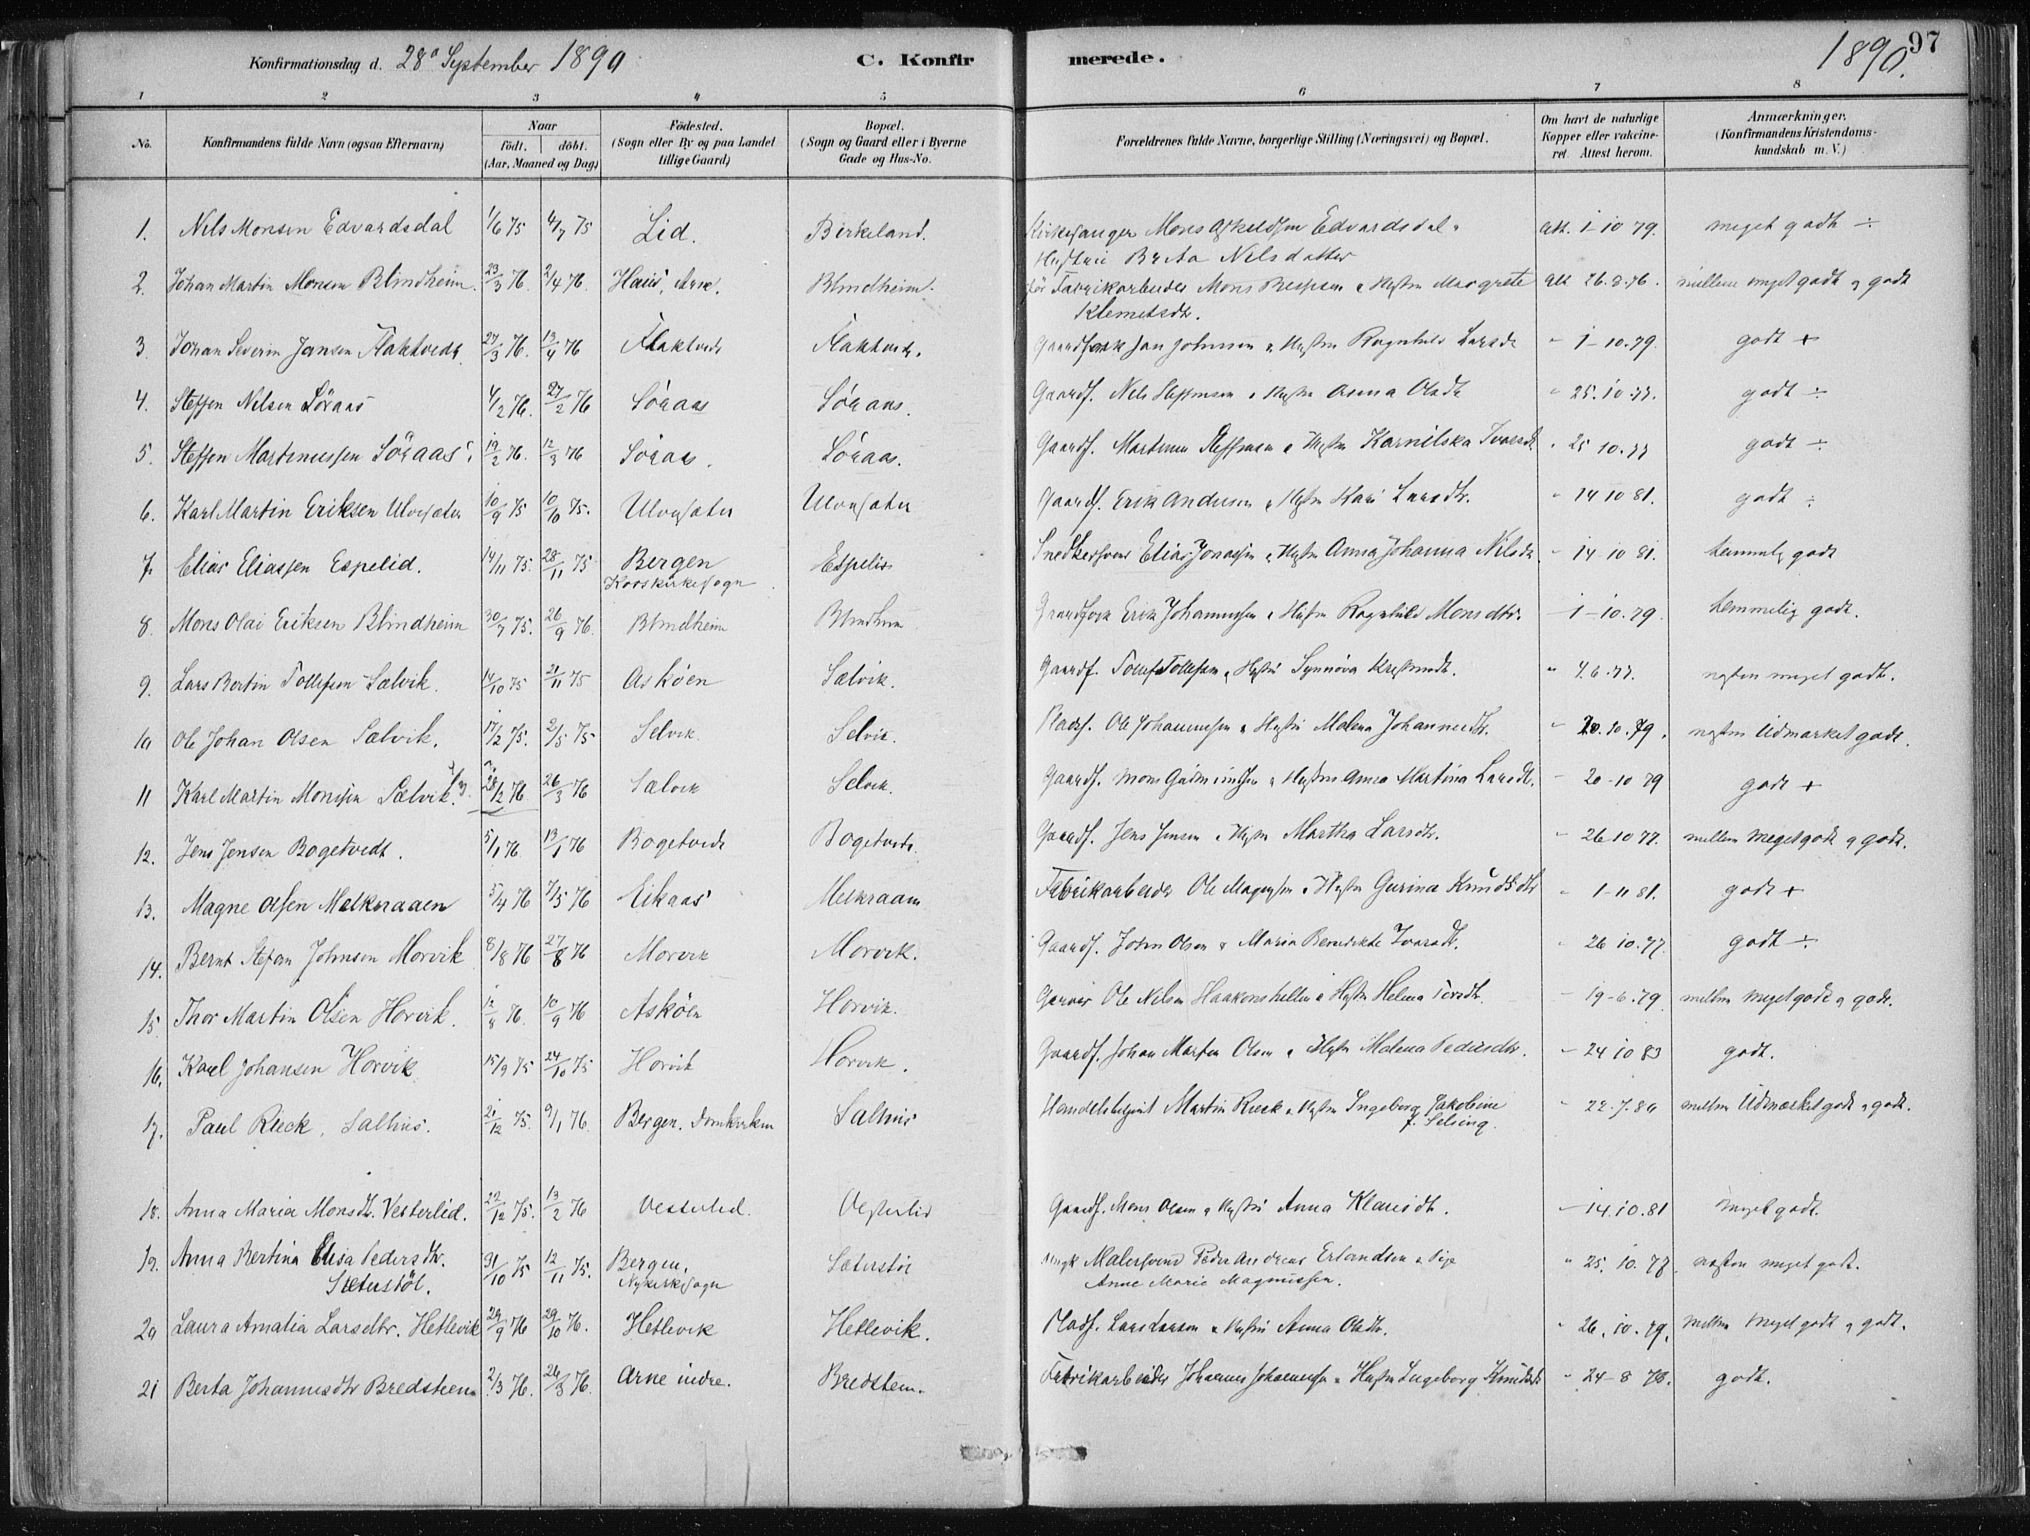 Konfirmationsdag d. 28de September 1890 C. Konfirmerede. 1890. 97
1 2 3 4 5 6 7 8
No. Konfirmandens fulde Navn (ogsaa Efternavn) Naar født. døbt. (Aar, Maaned og Dag) Födested. (Sogn eller By og paa Landet tillige Gaard) Bopæl. (Sogn og Gaard eller i Byerne Gade og Hus-No.) Forældrenes fulde Navne, borgerlige Stilling (Næringsvei) og Bopæl. Om havt de naturlige Kopper eller vakcineret. Attest herom. Anmærkninger. (Konfirmandens Kristendomskundskab m. V.)
1. Nils Monsen Edvardsdal 1/6 75 4/7 75 Lid. Birkeland. Kirkesanger Mons Edvardsdal. att. 1-10 79. meget godt ÷
Hustru Brita Nilsdatter
2. Johan Martin Monsen Blindheim. 23/3 76 2/4 76 Haus, Arne. Blindheim. Fabrikarbeider Mons Hustru Margrete att 26.8.76. mellem meget godt og godt
Klemetsdtr.
3. Johan Severin Jansen Flaktvedt 27/3 76. 13/4 76 Flaktvedt Flaktvedt. Jan Johnsen Hustru Ragnhild Larsdt " 1-10.79. godt +
4. Steffen Nilsen Söraas 4/2 76. 27/2 76 Söraas Söraas. Gaardf. Nels Steffensen Hustru Anna Olsdt " 25.10.77. godt ÷
5. Steffen Martinussen Söraas. 19/2 76. 12/3 76 Söraas. Söraas. Gaardf. Martinus Steffensen Hustru Karnilska Ivarsdt " 25 10.77 godt ÷
6. Karl Martin Eriksen Ulvesæter 10/9 75 10/10 75. Ulvesæter Ulvesæter Gaardf. Erik Andersen Hustru Kari Larsdtr. " 14 10 81. godt ÷
7. Elias Eliassen Espelid. 14/11 75. 28/11 75 Bergen Espelid Snedkersvend Elias Hustru Anna Johanna Nilsdt " 14 10 81. temmelig godt
Korskirkesogn
8. Mons Olai Eriksen Blindheim 30/7 75. 26/9 76. Blindheim Blindheim Erik Johannessen Hustru Ragnhild Monsdtr. 1-10.79. temmelig godt.
9. Lars Bertin Tollefsen Sælvik. 14/10 75 21/11 75 Askøen Sælvik. Gaardf. Tollef Tollefsen Hustru Synnøva " 4.6.77. næsten meget godt.
10 Ole Johan Olsen Sælvik. 17/2 75. 2/5 75 Selvik. Selvik. Pladsf. Ole Johannessen Hustru Malena Johannesdtr. " 20.10.79. næsten Udmærket godt.
11 Karl Martin Monssen Sælvik. 28/2 76 26/3 76 Sælvik Selvik. Gaardf. Mons Gudmundsen Hustru Anna Martina Larsdt. " 20-10 79 godt +
12. Jens Jensen Bogetvedt. 5/1 76 13/1 76 Bogetvedt Bogetvedt. Gaardf. Jens Jensen Hustru Martha Larsdtr. " 26 10 77. mellem meget godt og godt.
13. Magne Olsen Melkeraaen 5/4 76 7/5 76 Eikaas Melkraaen Fabrikarbeider Ole Magnesen Hustru Gurina Knudsdtr " 1-11 81. godt +
14. Bernt Stefan Johnsen Morvik 8/8 76 27/8 76 Morvik Morvik. Gaardf. John Olsen Maria Benedikte Ivarsdt. " 26 10.77. godt ÷
15 Thor Martin Olsen Horvik. 12/8 76. 10/9 76 Askøen Horvik. Garver Ole Nilsen Haakonshellen Hustru Helena " 19-6.79. mellem meget godt og godt.
16. Karl Johansen Horvik 15/9 75 24/10 75 Horvik Horvik. Gaardf. Johan Martin Olsen Hustru Malena Pedersdtr. - 24 10 83 godt.
17. Paul Rieck, Salhus. 21/12 75. 9/1 76. Bergen. Domkirken Salhus Martin Rieck Hustru Ingeborg Jakobine - 22.7.80 mellem Udmærket godt og godt.
f. Selsing.
18. Anna Maria Monsdtr. Vesterlid. 22/12 75. 13/2 76 Vesterlid. Vesterlid Gaardf. Mons Olsen Hustru Anna Klausdt. -14.10.81 meget godt.
19. Anna Bertina Elisa Pedersdtr. 31/10 75 12/11 75. Bergen. Sæterstöl Malersvend Peder Andreas Erlandsen Pige " 25.10.77. næsten meget godt.
Sæterstöl. Nykirkesogn Anne Marie Magnussen.
20 Laura Amalia Larsdtr. Hetlevik 29/9 76 29/10 76. Hetlevik Hetlevik. Pladsf. Lars Larsen Hustru Anna Olsdtr. " 26.10.79. mellem meget godt og godt.
21 Berta Johannesdtr Bredsteen. 2/3 76. 26/3 76. Arne indre. Bredsteen. Fabrikarbeider Johannes Johannessen Hustru Ingeborg Knudsdt " 24-8 78. godt.